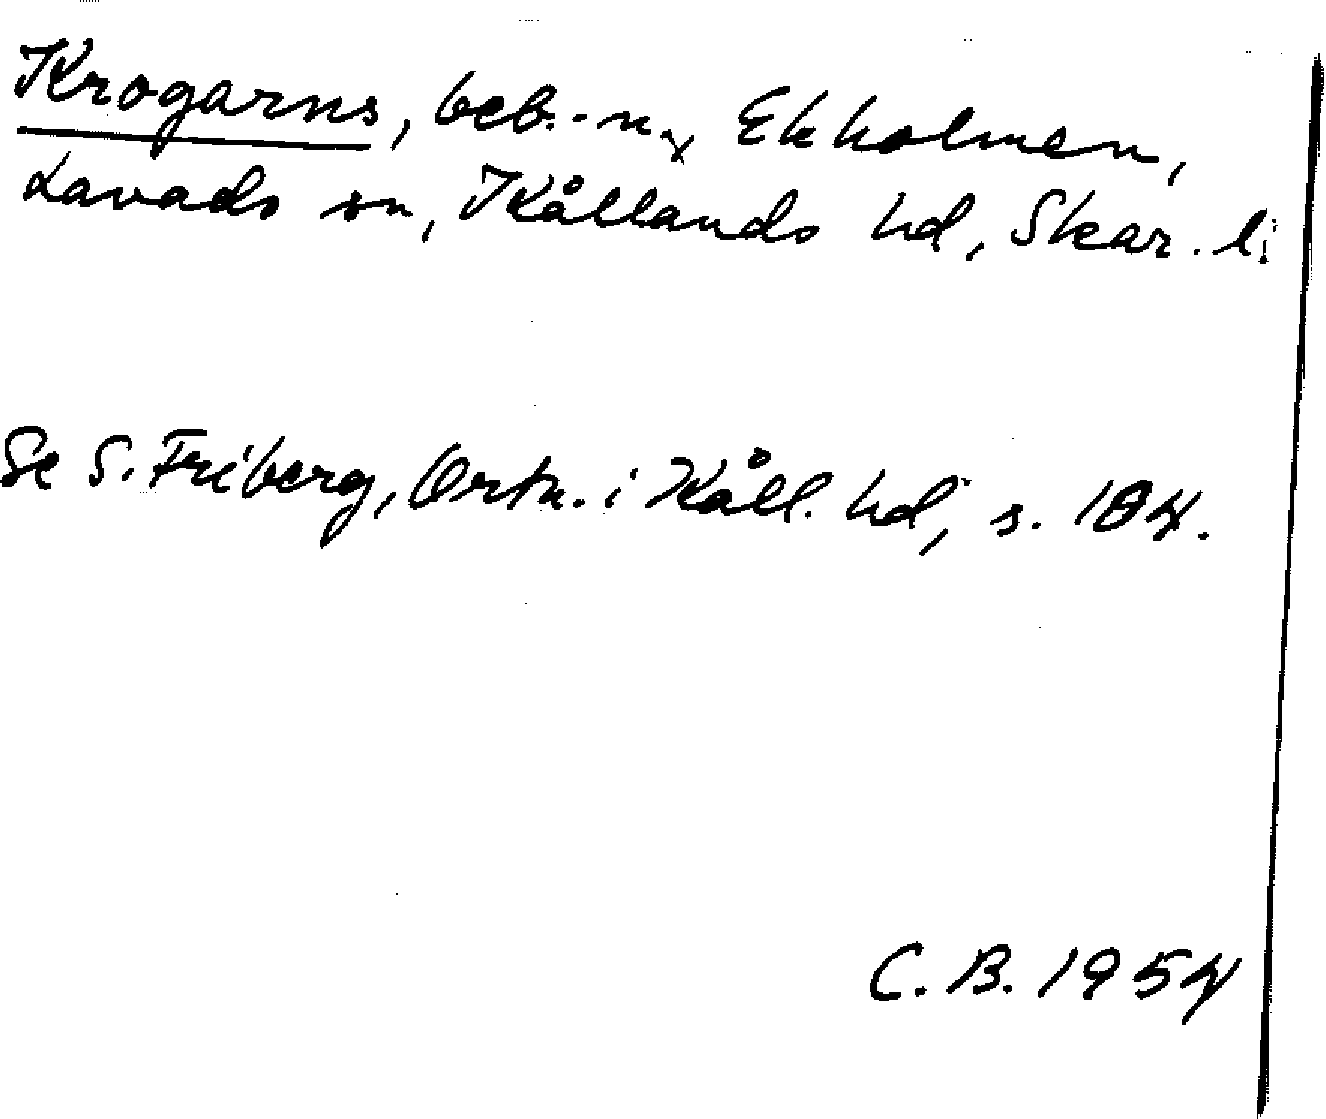 Krogarns, beb.-n. x Ekholmen,
Lavads sn, Kållands hd, Skar. l:
Se S. Friberg, Ortn. i Kåll. hd, s. 184.
C. B. 1954